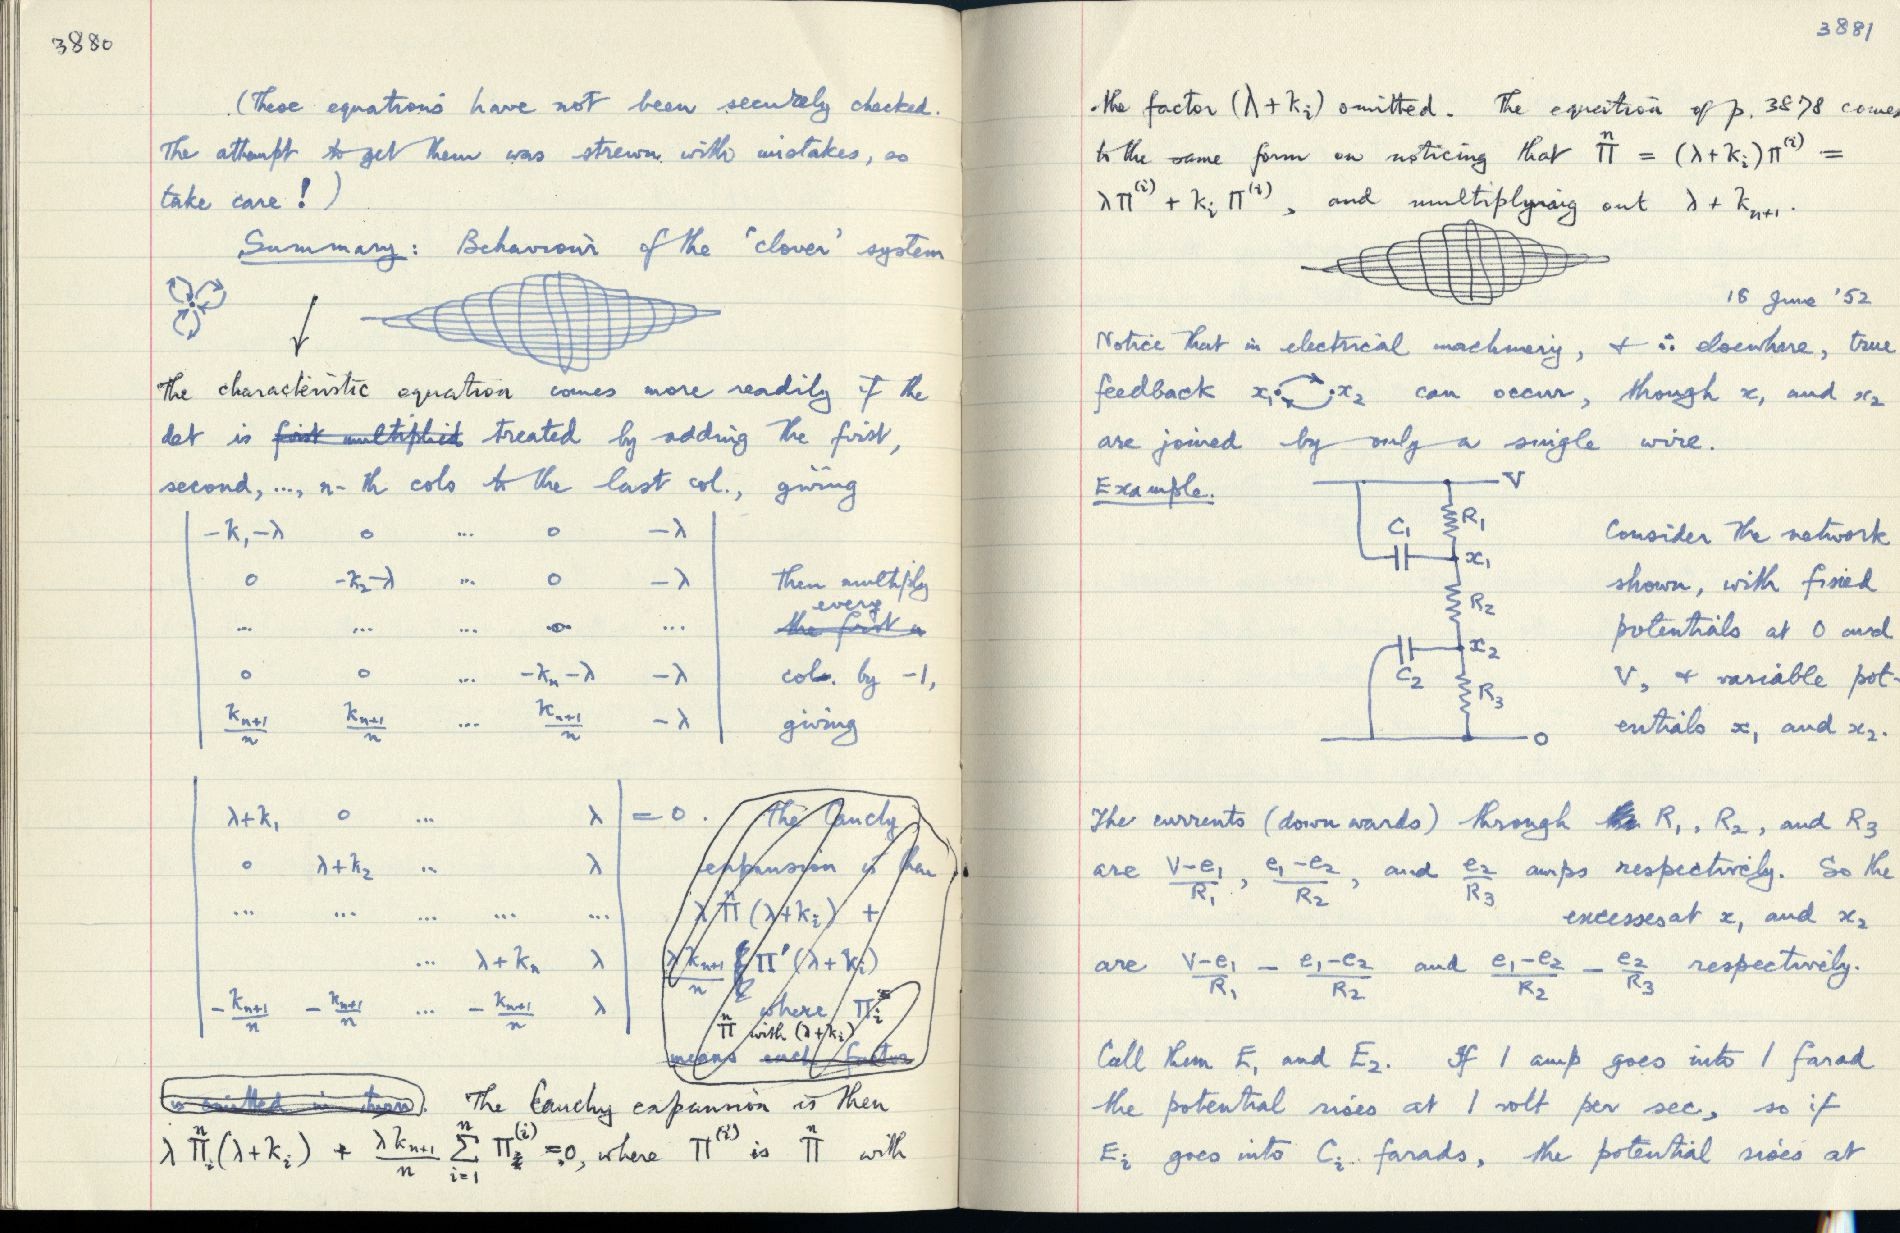 3880
(These equations have not been securely checked.
The attempt to get them was strewn with mistakes, so
take care!)
Summary: Behaviour of the 'clover' system
The characteristic equation comes more readily if the
det is first multiplied treated by adding the first,
second, ..., n-th cols to the last col., giving
-k₁-λ 0 ... 0 -λ
0 -k₂-λ ... 0 -λ then multiply
every
... ... ... 0 ... the first n
0 0 ... -kₙ-λ -λ col. by -1,
kₙ₊₁/n kₙ₊₁/n ... kₙ₊₁/n -λ giving
λ+k₁ 0 ... λ = 0. The Cauchy
0 λ+k₂ ... λ expansion is then
... ... ... ... ... λ Πⁿ (λ+kᵢ) +
... λ+kₙ λ λkₙ₊₁/n Σ Π'(λ+kᵢ)
-kₙ₊₁/n -kₙ₊₁/n ... -kₙ₊₁/n λ where Πᵢ
Πⁿ with (λ+kᵢ)
means each factor
is omitted in turn. The Cauchy expansion is then
λ Πⁿᵢ(λ+kᵢ) + λkₙ₊₁/n Σⁿᵢ₌₁ Π⁽ⁱ⁾ = 0, where Π⁽ⁱ⁾ is Πⁿ with
3881
the factor (λ+kᵢ) omitted. The equation of p. 3878 comes
to the same form on noticing that Πⁿ = (λ+kᵢ)Π⁽ⁱ⁾ =
λΠ⁽ⁱ⁾ + kᵢ Π⁽ⁱ⁾, and multiplying out λ + kₙ₊₁.
16 June '52
Notice that in electrical machinery, & ∴ elsewhere, true
feedback x₁ x₂ can occur, though x₁ and x₂
are joined by only a single wire.
Example.
V
R₁
C₁
x₁
R₂
x₂
C₂
R₃
0
Consider the network
shown, with fixed
potentials at 0 and
V, & variable pot-
entials x₁ and x₂.
The currents (downwards) through R₁, R₂, and R₃
are V-e₁/R₁, e₁-e₂/R₂, and e₂/R₃ amps respectively. So the
excesses at x₁ and x₂
are V-e₁/R₁ - e₁-e₂/R₂ and e₁-e₂/R₂ - e₂/R₃ respectively.
Call them E₁ and E₂. If 1 amp goes into 1 farad
the potential rises at 1 volt per sec, so if
Eᵢ goes into Cᵢ farads, the potential rises at